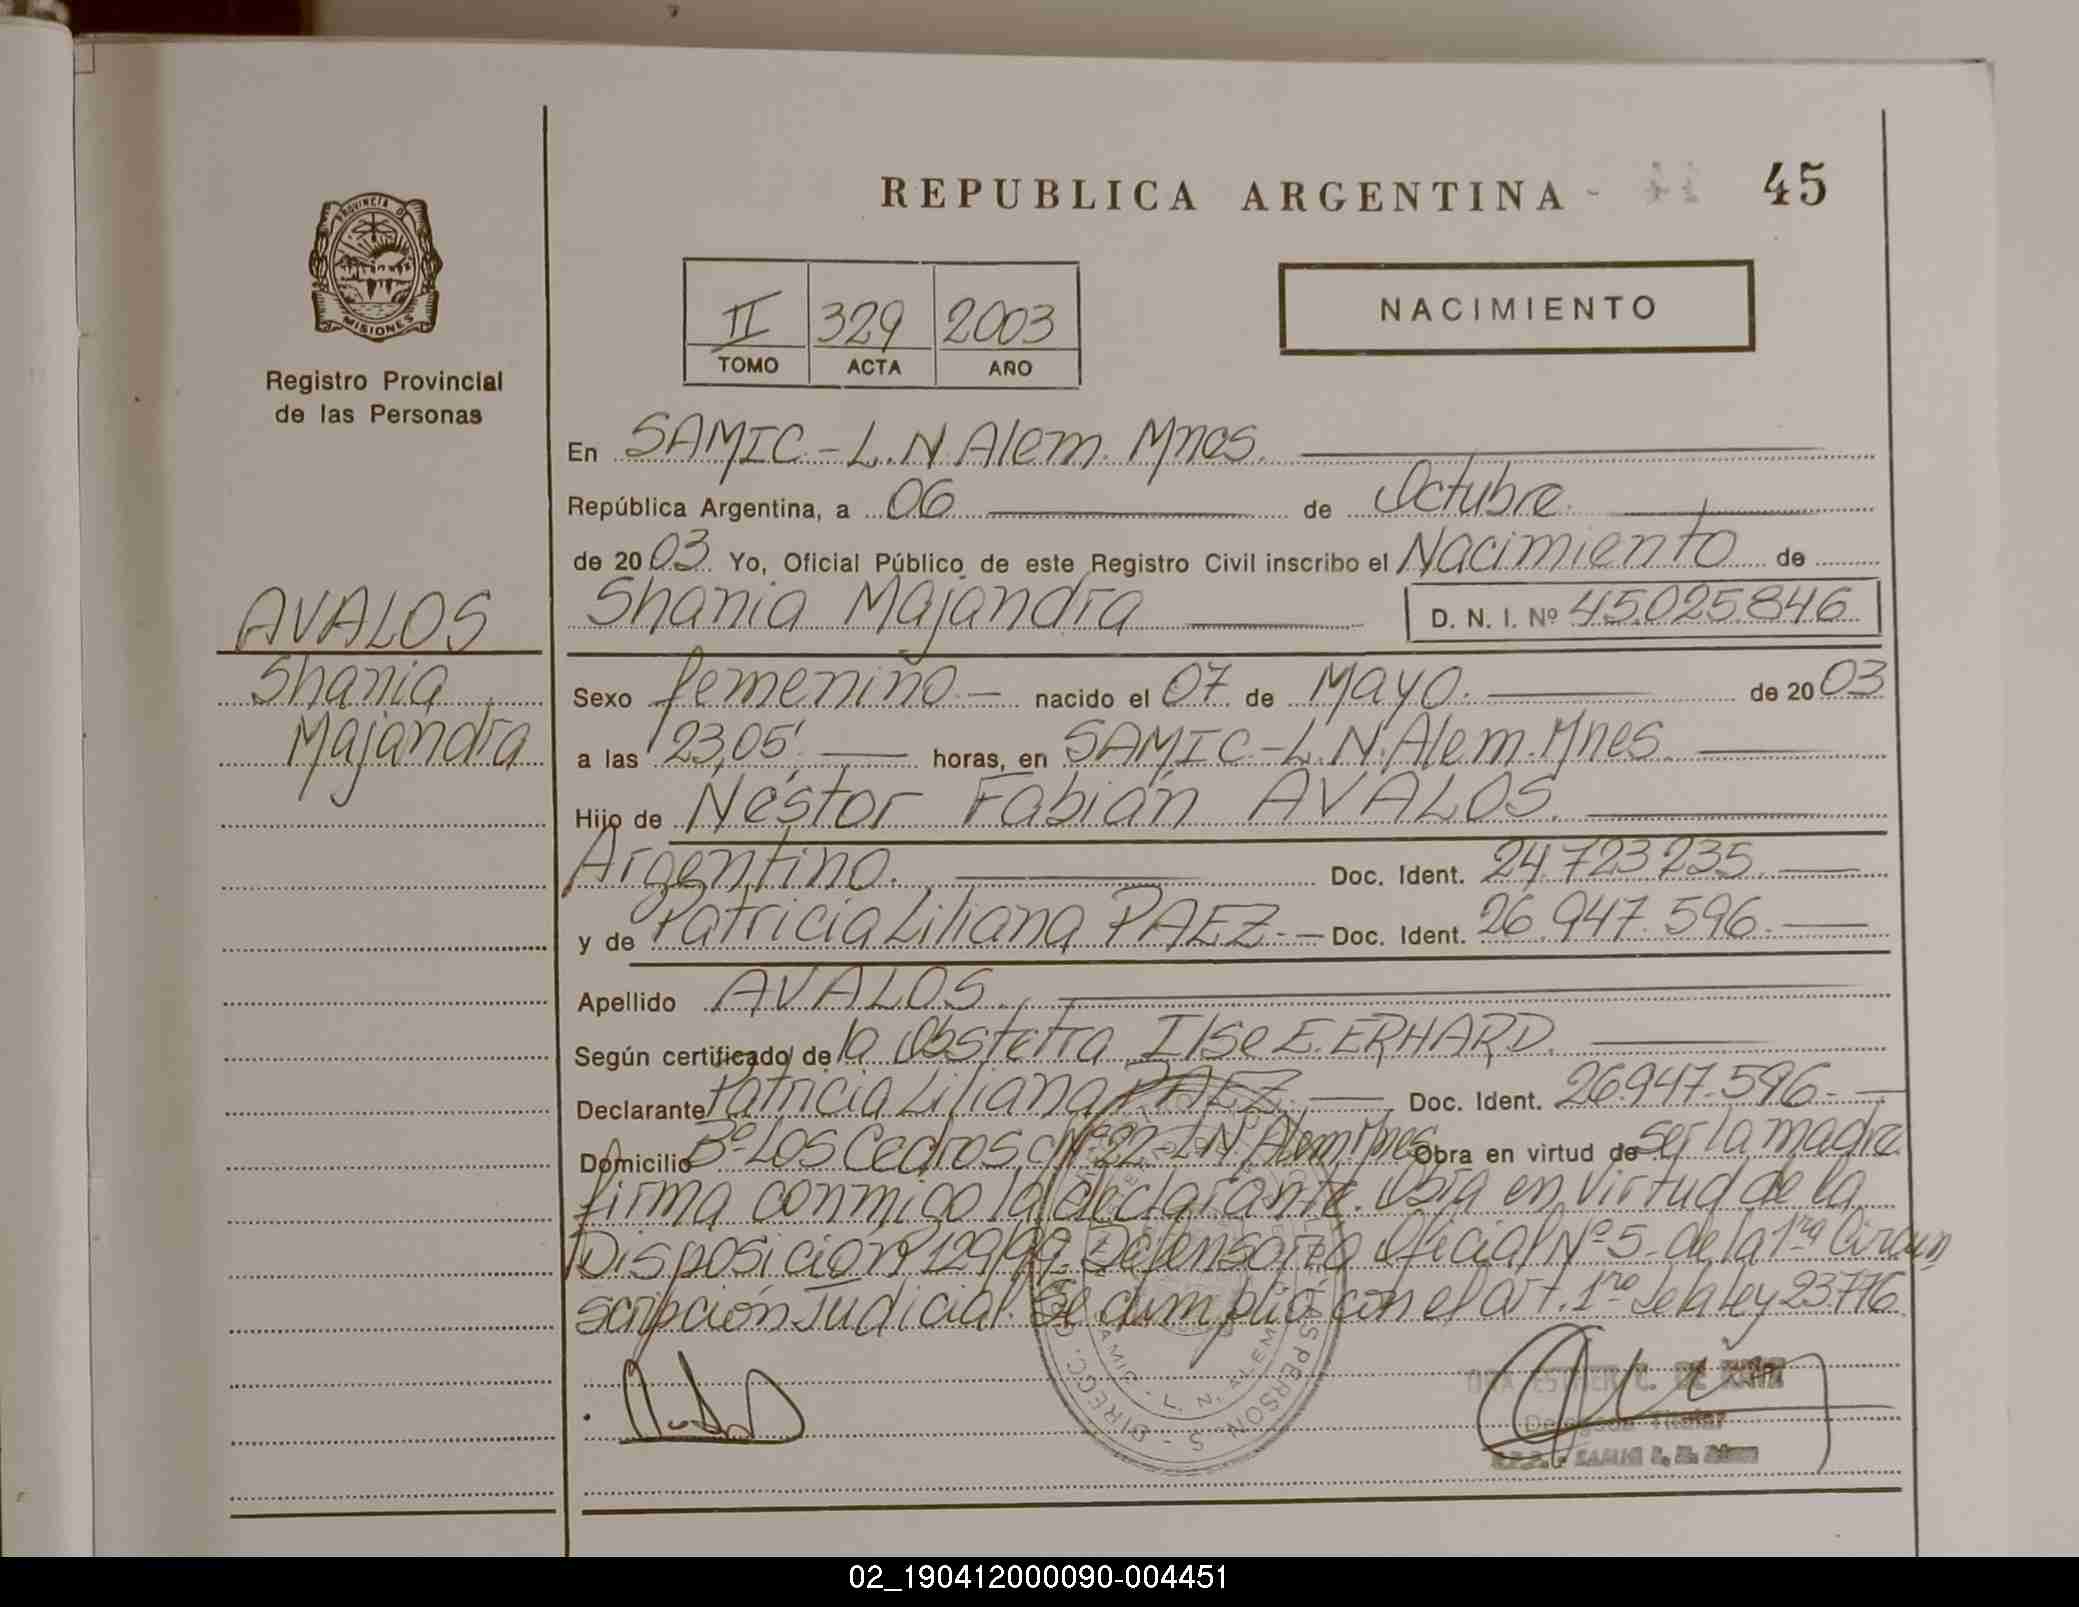 REPUBLICA ARGENTINA - 45
PROVINCIA DE
MISIONES
Registro Provincial
de las Personas
II 329 2003
TOMO ACTA AÑO
NACIMIENTO
En SAMIC-L.N.Alem. Mnes.
República Argentina, a 06 de Octubre
de 2003 Yo, Oficial Público de este Registro Civil inscribo el Nacimiento de
Shania Majandra D. N. I. Nº 45.025.846
AVALOS
Shania
Majandra
Sexo femenino.- nacido el 07 de Mayo. de 2003
a las 23,05' horas, en SAMIC-L.N.Alem.Mnes
Hijo de Néstor Fabián AVALOS.
Argentino. Doc. Ident. 24.723.235.
y de Patricia Liliana PAEZ.- Doc. Ident. 26.947.596.
Apellido AVALOS.
Según certificado de la Obstetra Ilse E. ERHARD.
Declarante Patricia Liliana PAEZ. Doc. Ident. 26947.596.-
Domicilio Bº Los Cedros, c/Nº22-L.N.Alem.Mnes Obra en virtud de ser la madre.
firma conmigo la declarante. Obra en virtud de la
Disposición 129/99. Defensoria Oficial Nº 5. de la 1ra Circun
scripción Judicial. Se cumplió con el art. 1ro de la ley 23.776
SAMIC - L. N. ALEM
DIRECC. PERSONAS
ESTHER C. DE
Delegada Titular
R.P.P. SAMIC L. N. Alem
02_190412000090-004451